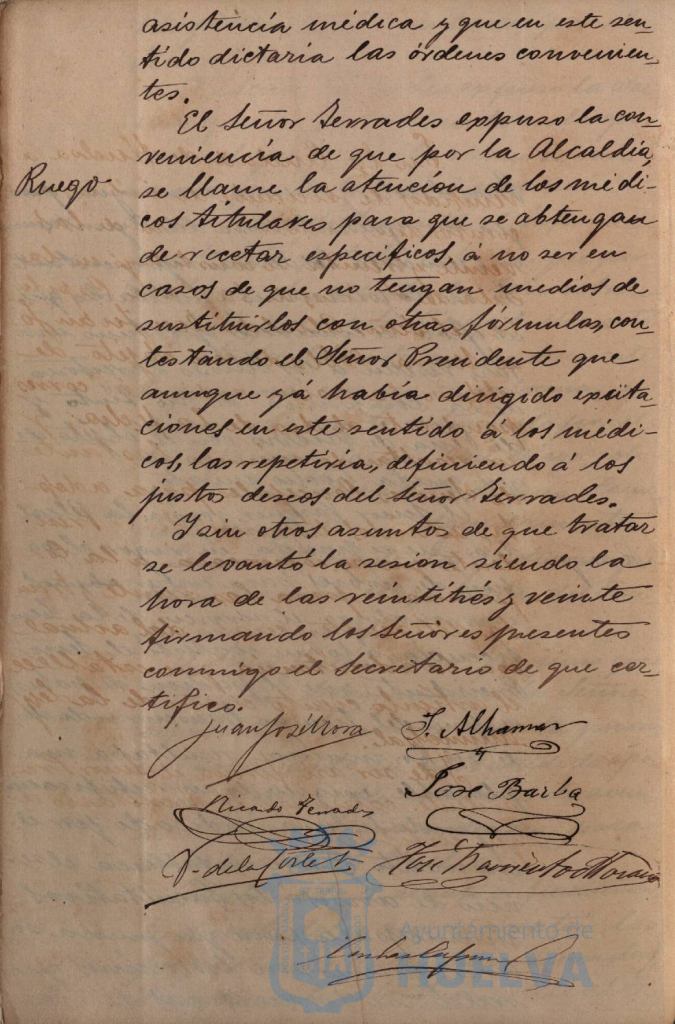 asistencia médica y que en este sen-
tido dictaría las órdenes convenien-
tes.
El Señor Terrades expuso la con-
veniencia de que por la Alcaldía,
Ruego
se llame la atención de los médi-
cos titulares para que se abtengan
de recetar específicos, á no ser en
casos de que no tengan medios de
sustituirlos con otras fórmulas, con-
testando el Señor Presidente que
aunque yá había dirigido exita-
ciones en este sentido á los médi-
cos, las repetiría, definiendo á los
justos deseos del Señor Terrades.
Y sin otros asuntos de que tratar
se levantó la sesion siendo la
hora de las veintitrés y veinte
firmando los Señores presentes
conmigo el Secretario de que cer-
tifico.
Juan José Mora
J. Alhamar
José Barba
Ricardo Terrades
de la Corte
José
Ayuntamiento de
HUELVA